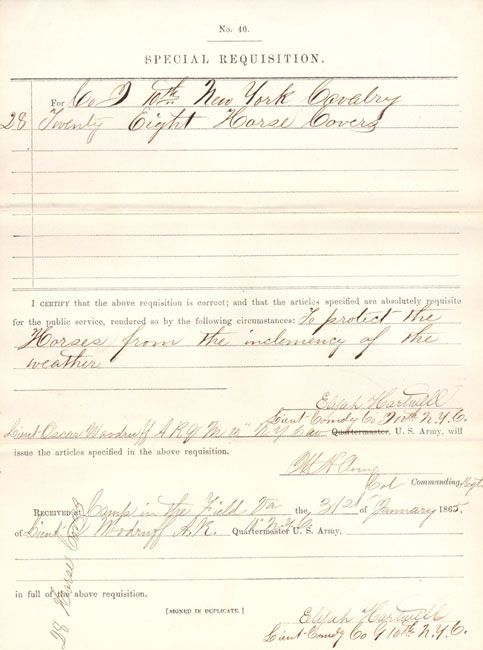 No. 40.
SPECIAL REQUISITION.
For Co I 10th New York Cavalry
28 Twenty Eight Horse Covers
I CERTIFY that the above requisition is correct; and that the articles specified are absolutely requisite
for the public service, rendered so by the following circumstances: To protect the
Horses from the inclemency of the
weather
Elijah Hartwell
Lieut Comdg Co 10th N.Y.C.
Lieut Oscar Woodruff A R Q M N.Y Cav Quartermaster, U. S. Army, will
issue the articles specified in the above requisition.
Col Commanding, Regt
RECEIVED at Camp in the Field Va the 31 of January 1865,
of Lieut Woodruff A.R. Quartermaster U. S. Army,
in full of the above requisition.
[SIGNED IN DUPLICATE.]
Elijah Hartwell
Lieut Comdg Co 10th N.Y.C.
28 Horse